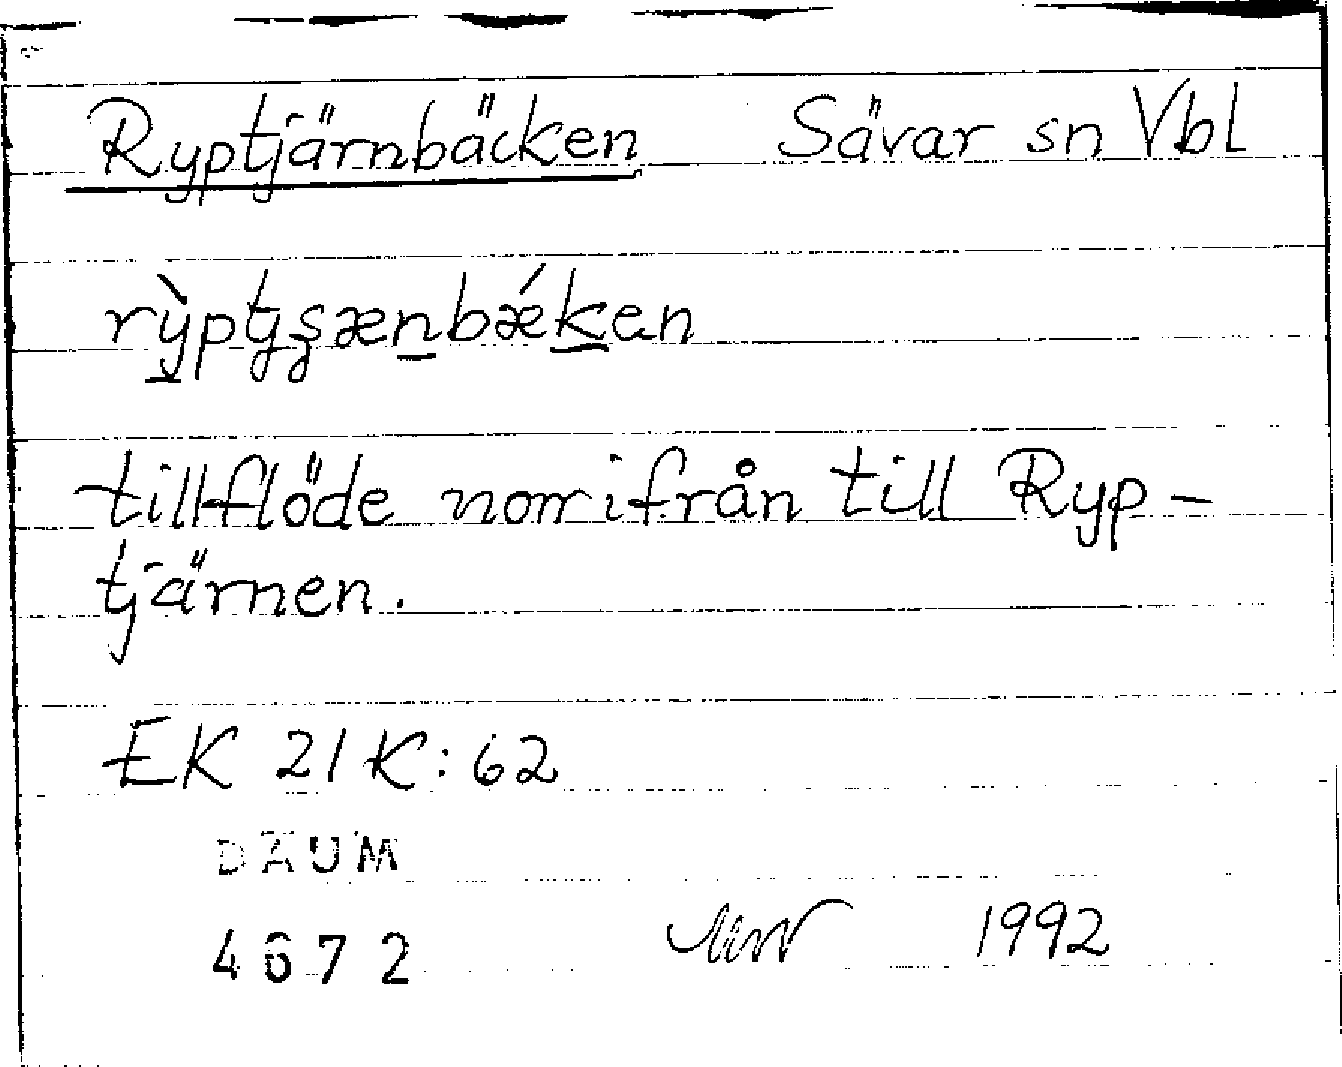 Ryptjärnbäcken Sävar sn Vbl
rỳptʒsænbǽken
tillflöde norrifrån till Ryp-
tjärnen.
EK 21 K: 62
DAUM
4672 1992